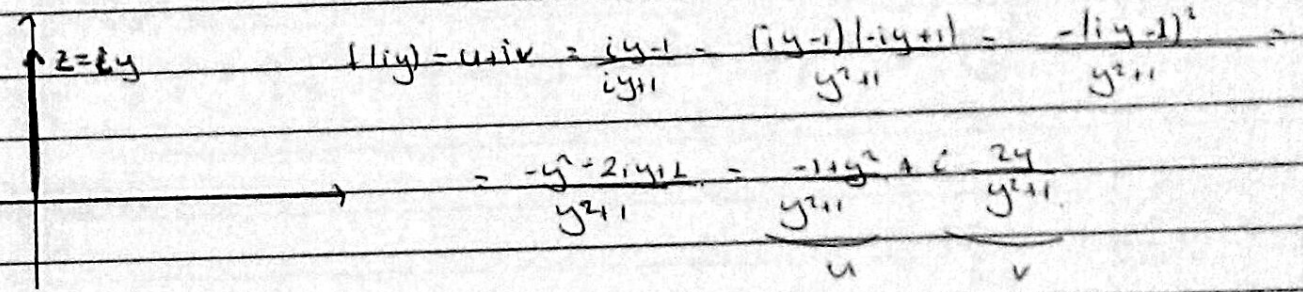 z=iy f(iy) = u+iv = \frac{iy-1}{iy+1} = \frac{(iy-1)(-iy+1)}{y²+1} = \frac{-(iy-1)²}{y²+1} =
= \frac{-y²-2iy+1}{y²+1} = \frac{-1+y²}{y²+1} + i \frac{2y}{y²+1}
u v